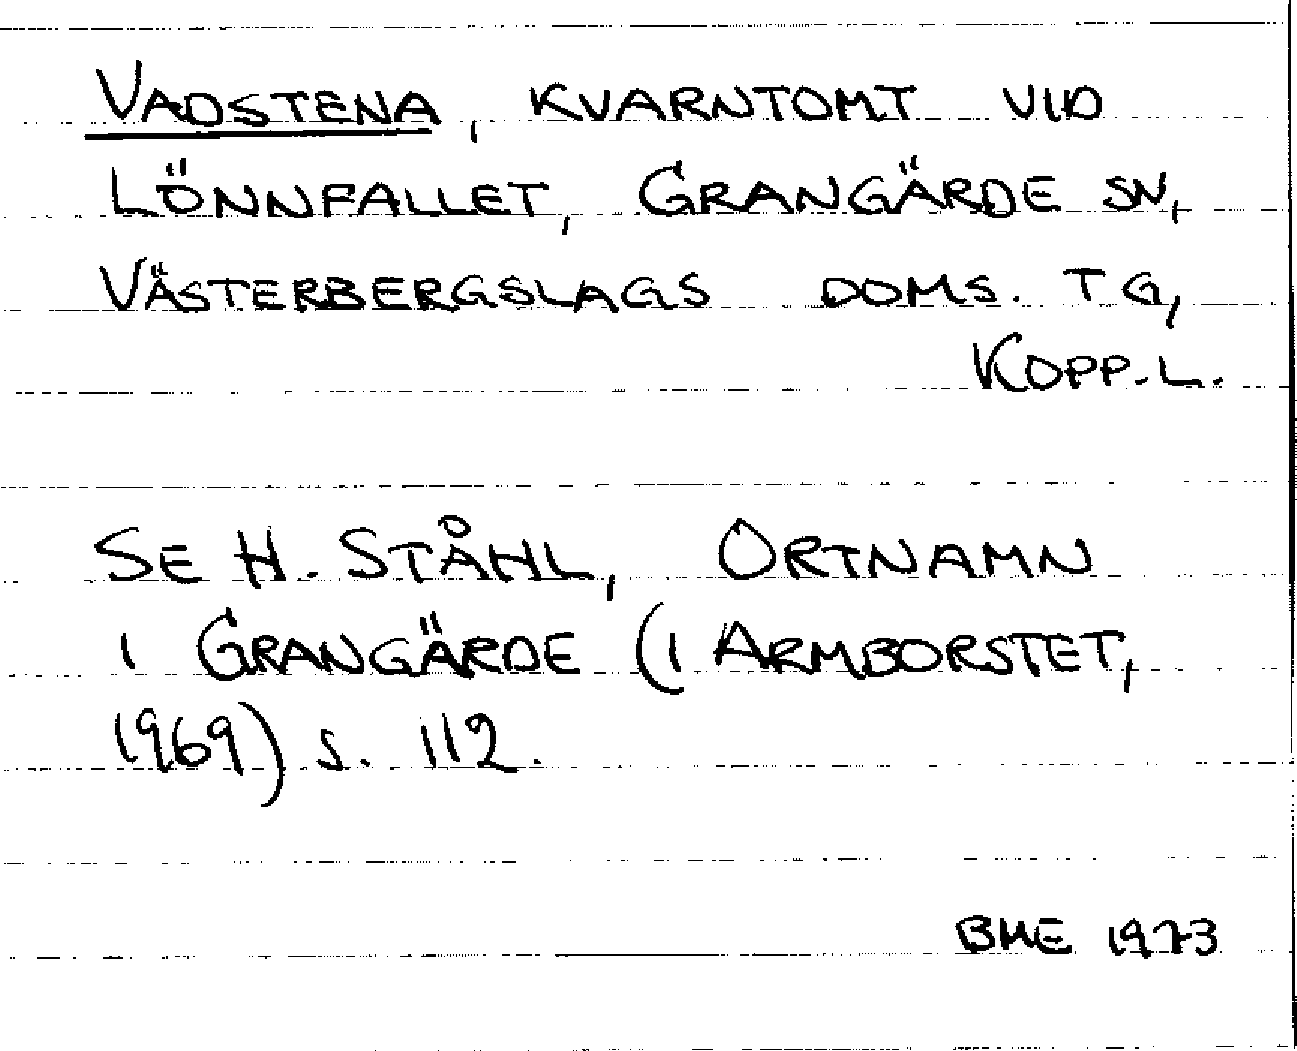 VADSTENA, KVARNTOMT VID
LÖNNFALLET, GRANGÄRDE SN,
VÄSTERBERGSLAGS DOMS. TG,
KOPP. L.
SE H. STÅHL, ORTNAMN
I GRANGÄRDE (I ARMBORSTET,
1969) S. 112.
BME 1973